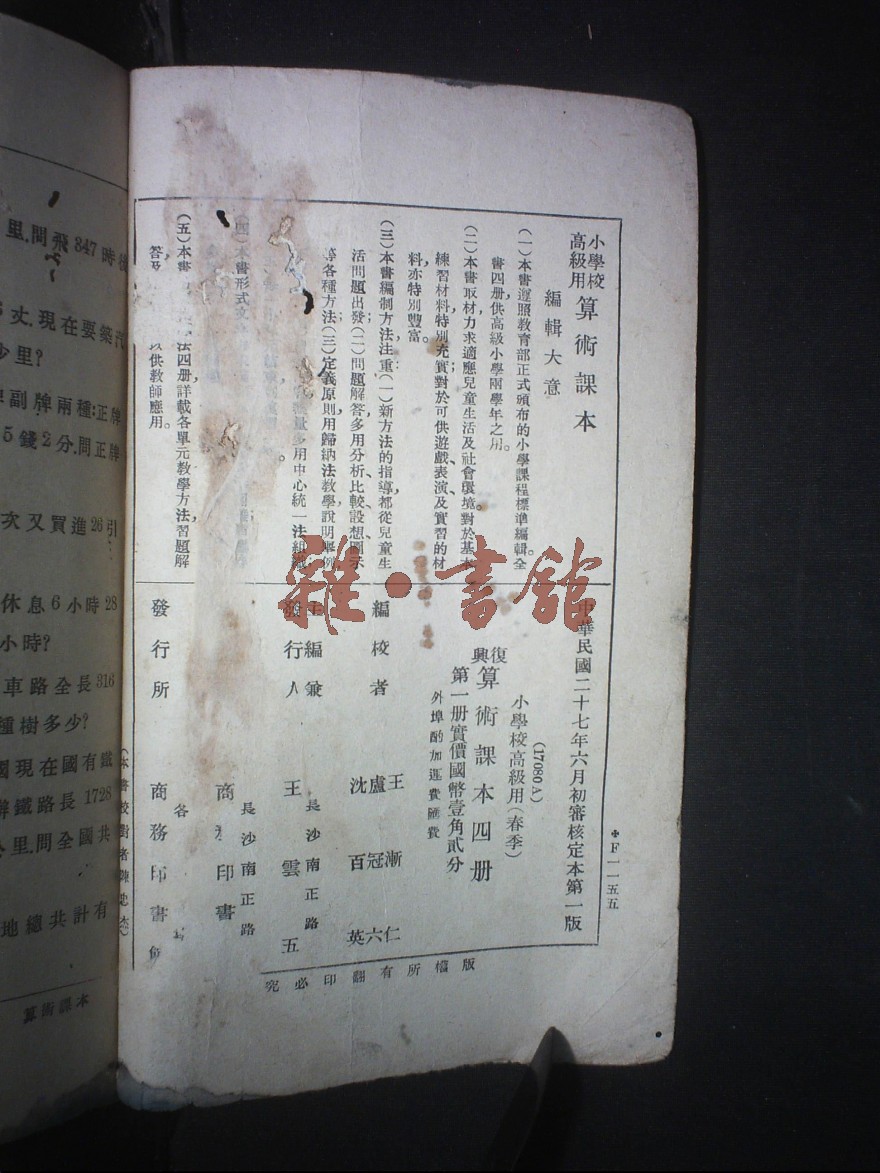 小學校
高級用
算術課本
編輯大意
(一)本書遵照教育部正式頒布的小學課程標準編輯,全
書四册,供高級小學兩學年之用。
(二)本書取材力求適應兒童生活及社會環境,對於基本
練習材料,特別充實,對於可供遊戲、表演及實習的材
料,亦特別豐富。
(三)本書編制方法注重:(一)新方法的指導,都從兒童生
活問題出發;(二)問題解答多用分析、比較、設想、圖示
等各種方法;(三)定義、原則用歸納法教學,說明舉例
量多用中心統一法組織
(四)本書形式
(五)本書 法四册,詳載各單元教學方法,習題解
答及 以供教師應用。
中華民國二十七年六月初審核定本第一版
(17080A)
小學校高級用(春季)
復興算術課本四册
第一册實價國幣壹角貳分
外埠酌加運費匯費
編校者 王漸仁
盧冠六
沈百英
主編兼
發行人 王雲五
長沙南正路
長沙南正路
商務印書
發行所 商務印書館
各
(本書校對者陳忠杰)
版權所有翻印必究
*F一一五五
雜·書館
里,問飛 847 時
丈,現在要築汽
少里?
副牌兩種:正牌
5 錢 2 分,問正牌
次又買進 26 引
休息 6 小時 28
小時?
車路全長 316
種樹多少?
國現在國有鐵
鐵路長 1728
公里,問全國共
地總共計有
算術課本